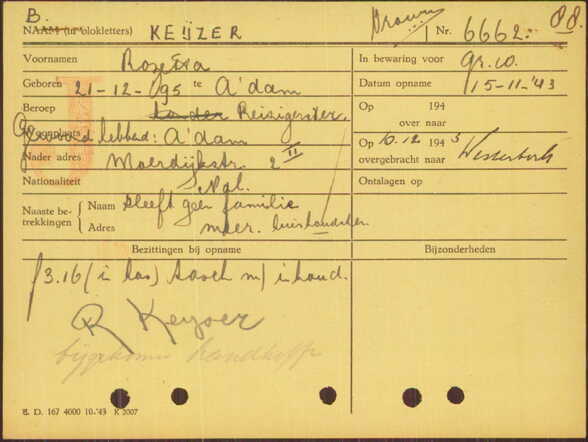 B.
Vrouw
88.
NAAM (in blokletters) KEIJZER
Nr. 6662.
Voornamen Rozetta
In bewaring voor gr. w.
Geboren 21-12-095 te A'dam
Datum opname 15-11-'43
Beroep Reizigster.
Op 194
over naar
Woonplaats Gewoond hebbend: A'dam
Nader adres Moerdijkstr. 2 II
Op 10.12 1943
overgebracht naar Westerbork
Nationaliteit Ngl.
Ontslagen op
Naaste betrekkingen
Naam Heeft geen familie
Adres meer. huishoudster.
Bezittingen bij opname
Bijzonderheden
f 3.16 (in kas) tasch m/inhoud.
R Keyser
bijgekomen handkoffer
E. D. 167 4000 10-'43 K 2007